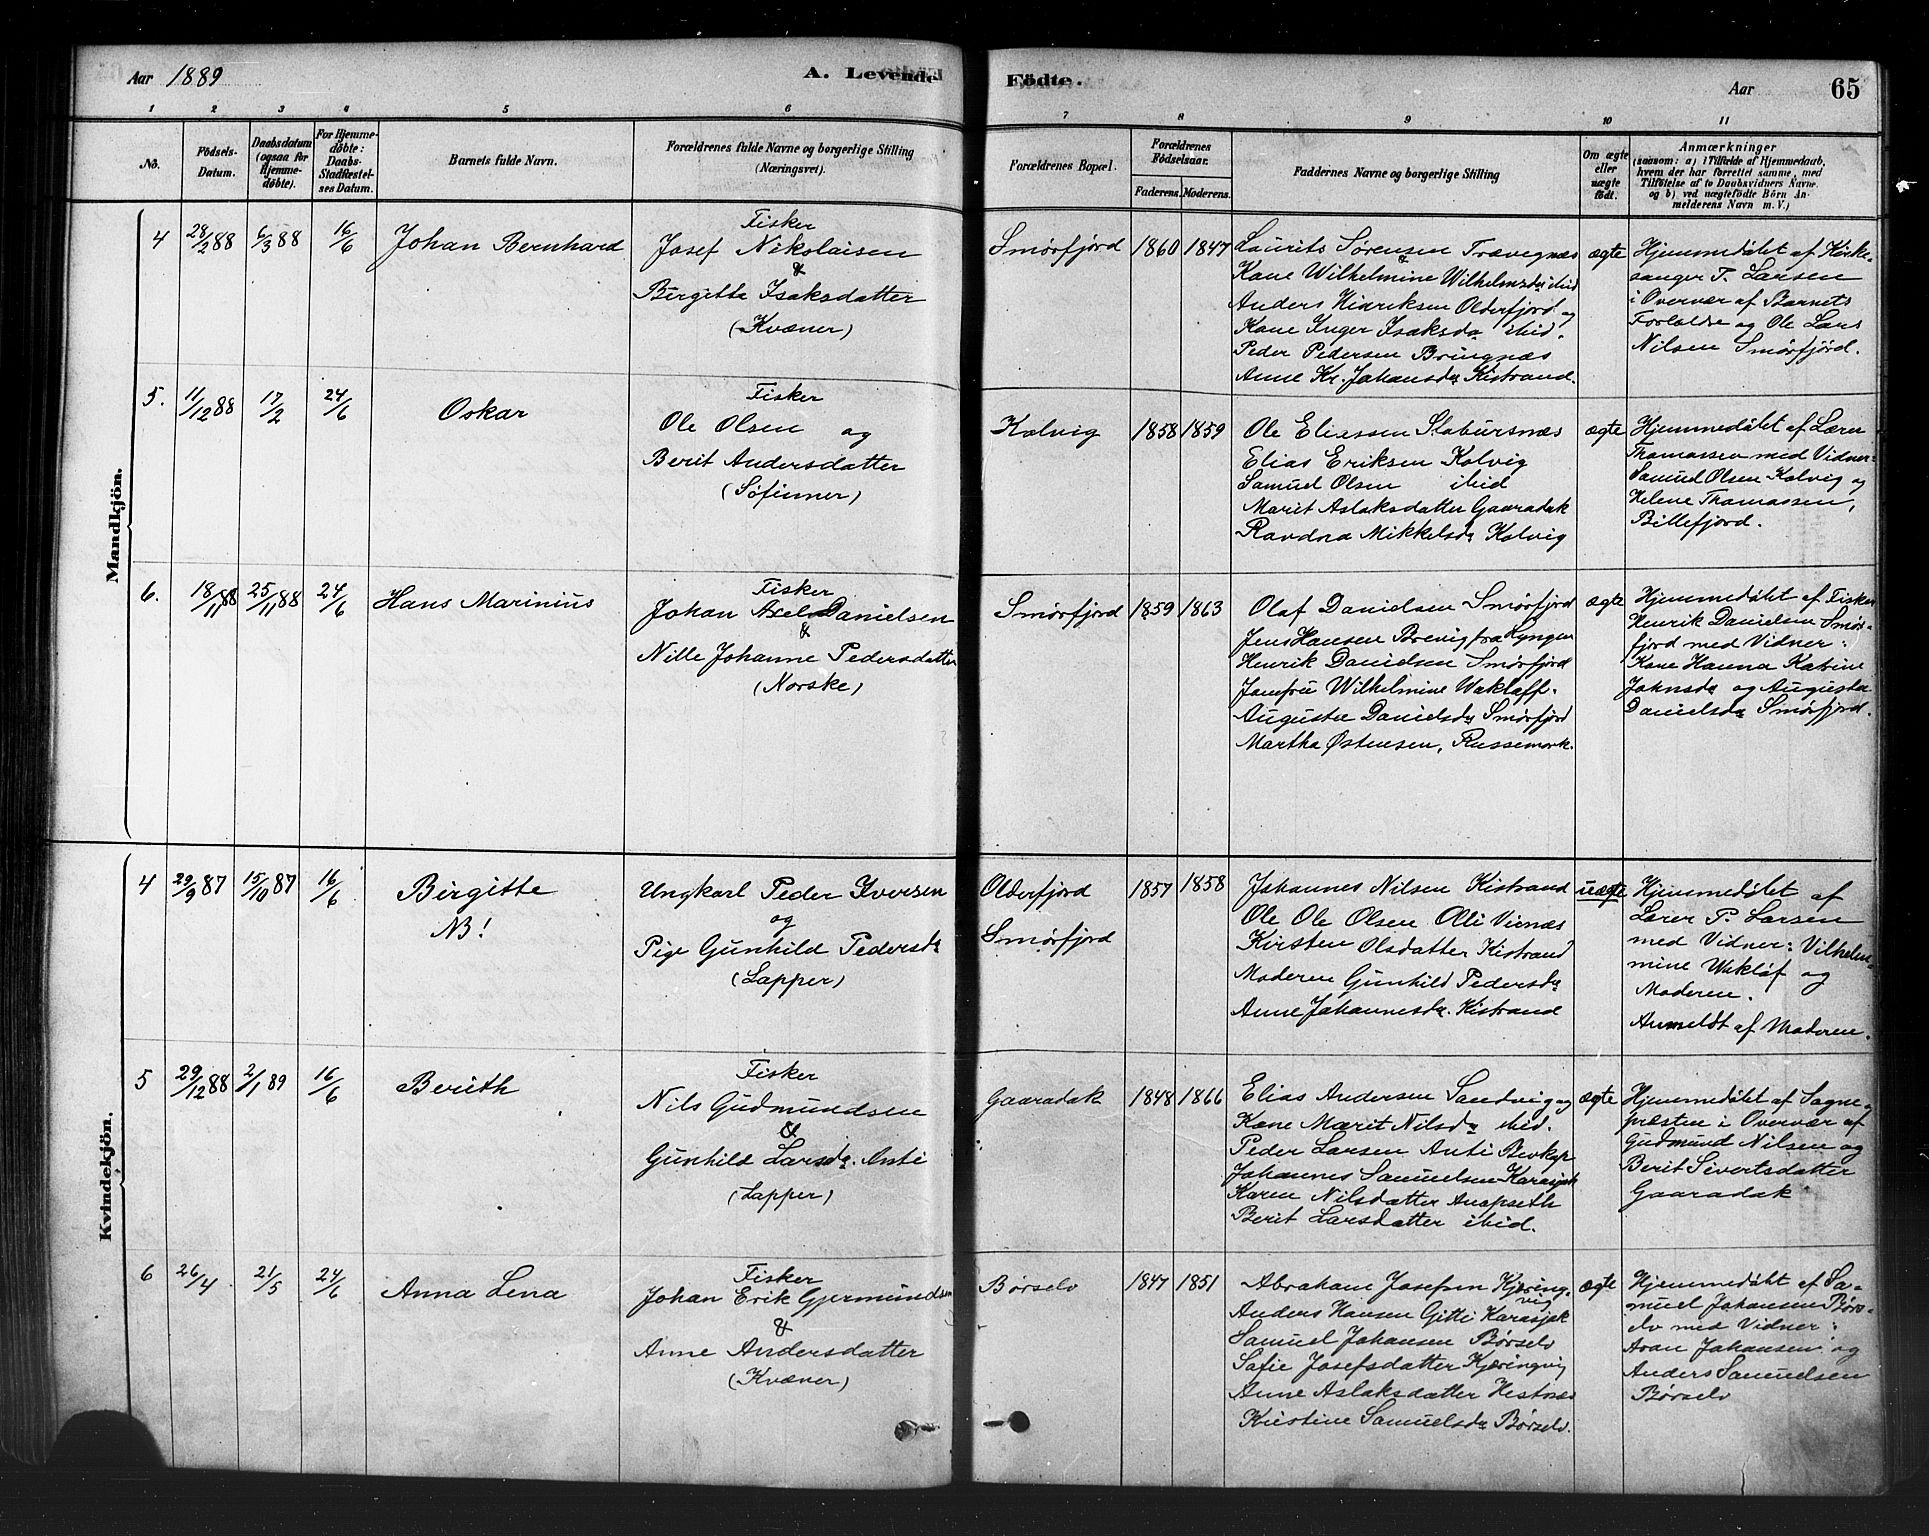 Aar 1889 A. Levende
Födte. Aar 65
1 2 3 4 5 6
7 8 9 10 11
No.
Födsels-
Datum.
Daabsdatum
(ogsaa for
Hjemme-
döbte).
For Hjemme-
döbte:
Daabs-
Stadfæstel-
ses Datum.
Barnets fulde Navn.
Forældrenes fulde Navne og borgerlige Stilling
(Næringsvei).
Forældrenes Bopæl.
Forældrenes
Födselsaar.
Faderens. Moderens.
Faddernes Navne og borgerlige Stilling
Om ægte
eller
uægte
födt.
Anmærkninger
(saasom: a) i Tilfælde af Hjemmedaab,
hvem der har forrettet samme, med
Tilföielse af to Daabsvidners Navne.
og b) ved uægtefödte Börn An-
melderens Navn m. V.)
Mandkjön.
4 28/2 88 6/3 88 16/6 Johan Bernhard
Fisker
Josef Nikolaisen
&
Birgitta Isaksdatter
(Kvæner)
Smørfjord 1860 1847
Laurits Sørensen Trævegnæs
& Kone Wilhelmine Wilhelmsda ibid
Anders Hinriksen Olderfjord og
Kone Inger Isaksda ibid.
Peder Pedersen Bringnæs
Anne Kr. Johansda Kistrand.
ægte
Hjemmedøbt af Kirke-
sanger P. Larsen
i Overvær af Barnets
Forældre og Ole Lars
Nilsen Smørfjord.
5. 11/12 88 17/2 24/6 Oskar
Fisker
Ole Olsen og
Berit Andersdatter
(Søfinner)
Kolvig 1858 1859
Ole Eliassen Stabursnæs
Elias Eriksen Kolvig
Samuel Olsen ibid
Marit Aslaksdatter Gaaradak
Ravdna Mikkelsda Kolvig
ægte
Hjemmedøbt af Lærer
Thomassen med Vidner:
Samuel Olsen Kolvig og
Helene Thomassen,
Billefjord.
6. 18/11 88 25/11 88 24/6 Hans Marinius
Fisker
Johan Axel Danielsen
&
Nille Johanne Pedersdatter
(Norske)
Smørfjord 1859 1863
Olaf Danielsen Smørfjord
Jens Hansen Brevig fra Lyngen
Henrik Danielsen Smørfjord
Jomfru Wilhelmine Waklaff.
Augusta Danielsda Smørfjord
Martha Østensen, Russemark.
ægte
Hjemmedøbt af Fisker
Henrik Danielsen Smør-
fjord med Vidner:
Kone Hanna Katrine
Johnsda og Augusta
Danielsda Smørfjord.
Kvindekjön.
4 29/9 87 15/10 87 16/6 Birgitte
NB!
Ungkarl Peder Iversen
og
Pige Gunhild Pedersda
(Lapper)
Olderfjord
Smørfjord
1857 1858
Johannes Nilsen Kistrand
Ole Ole Olsen Oli Viernæs
Kirsten Olsdatter Kistrand
Moderen Gunhild Pedersda
Anne Johannesda. Kistrand
uægte
Hjemmedøbt af
Lærer P. Larsen
med Vidner: Vilhelm-
mine Waklaf og
Moderen.
Anmeldt af Moderen.
5 29/12 88 2/1 89 16/6 Berith
Fisker
Nils Gudmundsen
&
Gunhild Larsda. Anti
(Lapper)
Gaaradak 1848 1866
Elias Andersen Sandvig og
Kone Marit Nilsda ibid.
Peder Larsen Anti
Johannes Samuelsen Karasjok
Karen Nilsdatter
Berit Larsdatter ibid.
ægte
Hjemmedøbt af Sogne-
præsten i Overvær af
Gudmund Nilsen og
Berit Sivertsdatter
Gaaradak
6 26/4 21/5 24/6 Anna Lena
Fisker
Johan Erik Gjermundsen
&
Anne Andersdatter
(Kvæner)
Børselv 1847 1851
Abraham Josefsen Kjæring-
vig
Anders Hansen Gitti Karasjok
Samuel Johansen Børselv
Sofie Josefsdatter Kjæringvig
Anne Aslaksdatter Hestnæs
Kristine Samuelsda Børselv.
ægte
Hjemmedøbt af Sa-
muel Johansen Børs-
elv med Vidner:
Aron Johansen og
Anders Samuelsen
Børselv